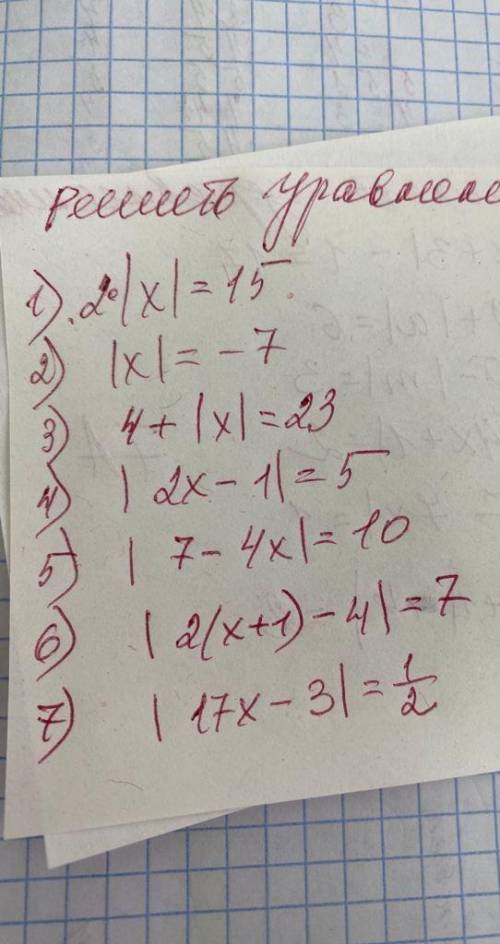 решить уравнение
1). 2•|x| = 15.
2) |x| = - 7
3) 4 + |x| = 23
4) | 2x - 1| = 5
5) | 7 - 4x| = 10
6) | 2(x+1) - 4| = 7
7) | 17x - 3| = 1/2